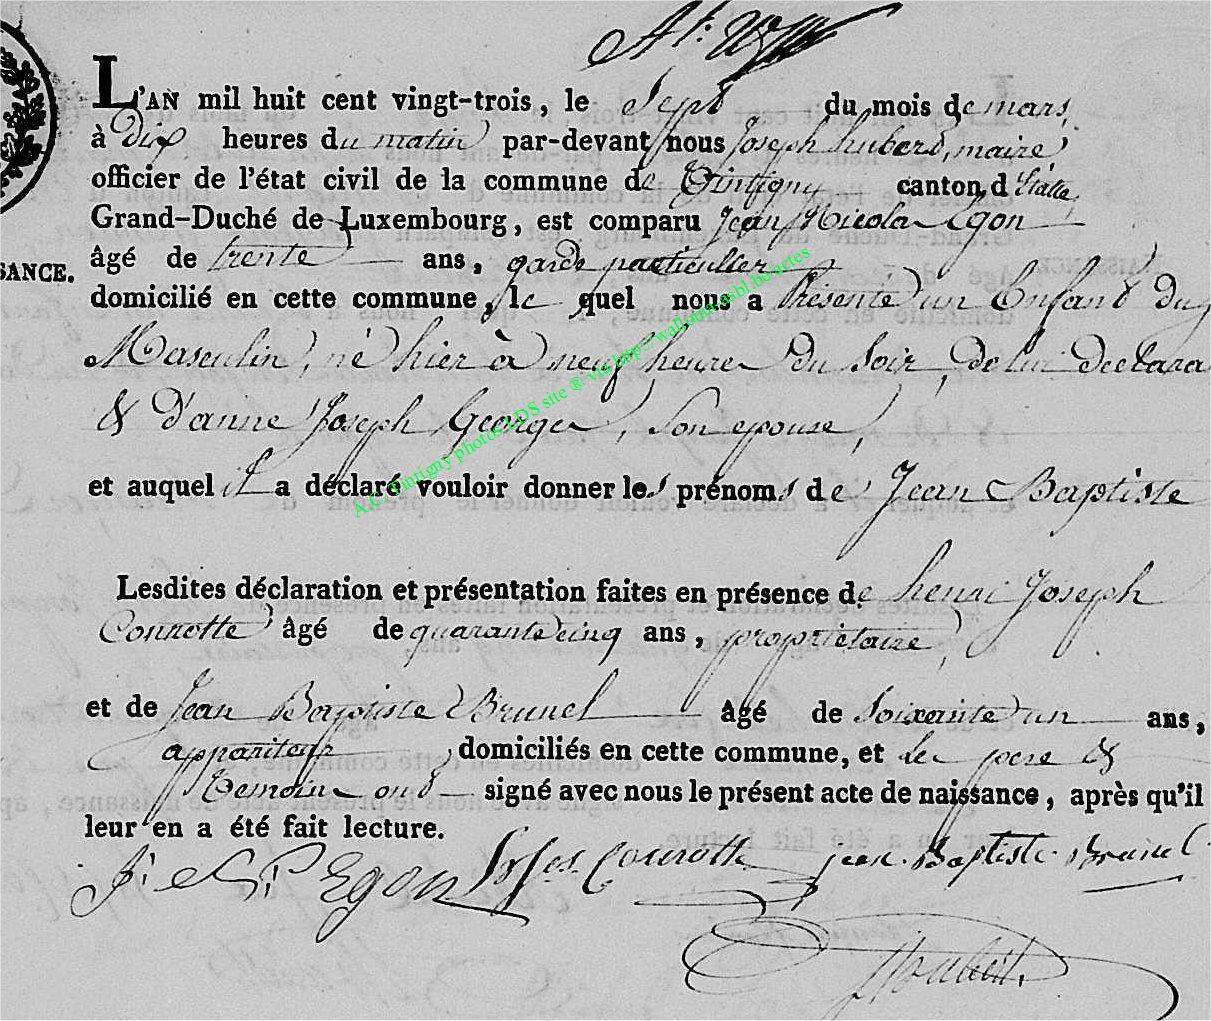 L'AN mil huit cent vingt-trois, le Sept du mois de mars,
à dix heures du matin par-devant nous Joseph hubert, maire,
officier de l'état civil de la commune de Tintigny canton d'Etalle,
Grand-Duché de Luxembourg, est comparu Jean Nicolas Egon
SANCE.
âgé de trente ans, garde particulier
domicilié en cette commune, le quel nous a Présenté un Enfant du
Masculin, né hier à neuf heures du Soir, de lui declara
& d'anne Joseph Georges, Son epouse,
et auquel il a déclaré vouloir donner les prénoms de Jean Baptiste
Lesdites déclaration et présentation faites en présence de henri Joseph
Conrotte âgé de quarante cinq ans, propriétaire,
et de Jean Baptiste Brunel âgé de Soixante un ans,
appariteur, domiciliés en cette commune, et les pere &
Temoins ont signé avec nous le présent acte de naissance, après qu'il
leur en a été fait lecture.
J. N. Egon Conrotte jean Baptiste Brunel
Hubert
A.C. Tintigny photos LDS site ® via http://wallonia.asbl.be/actes